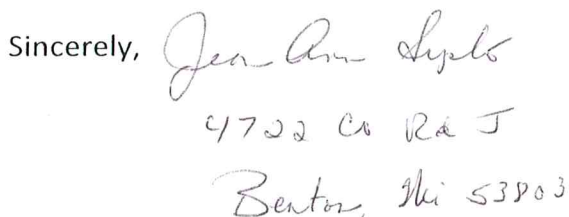 Sincerely, Jean Ann
4722 Co Rd J
Benton, Wi 53803